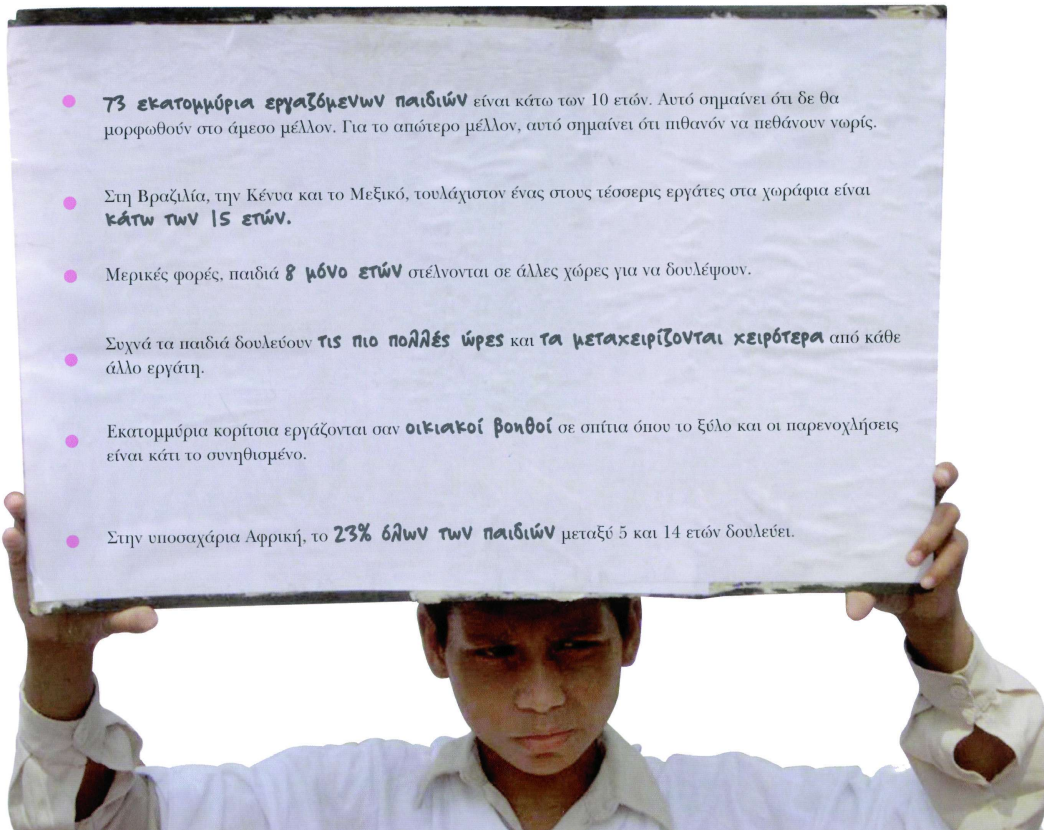 73 εκατομμύρια εργαζόμενων παιδιών είναι κάτω των 10 ετών. Αυτό σημαίνει ότι δε θα
μορφωθούν στο άμεσο μέλλον. Για το απώτερο μέλλον, αυτό σημαίνει ότι πιθανόν να πεθάνουν νωρίς.
Στη Βραζιλία, την Κένυα και το Μεξικό, τουλάχιστον ένας στους τέσσερις εργάτες στα χωράφια είναι
κάτω των 15 ετών.
Μερικές φορές, παιδιά 8 μόνο ετών στέλνονται σε άλλες χώρες για να δουλέψουν.
Συχνά τα παιδιά δουλεύουν τις πιο πολλές ώρες και τα μεταχειρίζονται χειρότερα από κάθε
άλλο εργάτη.
Εκατομμύρια κορίτσια εργάζονται σαν οικιακοί βοηθοί σε σπίτια όπου το ξύλο και οι παρενοχλήσεις
είναι κάτι το συνηθισμένο.
Στην υποσαχάρια Αφρική, το 23% όλων των παιδιών μεταξύ 5 και 14 ετών δουλεύει.